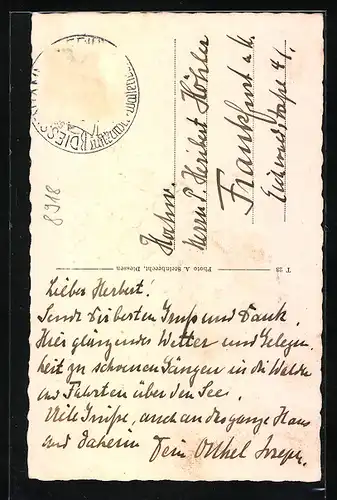 DIESSEN
8918
Hochw.
Herrn P. Heribert Köhler
Frankfurt a. M.
Photo A. Steinbrecht, Diessen
T 23
Lieber Herbert!
Sende Dir besten Gruß und Dank.
Hier glänzendes Wetter und Gelegen
heit zu schönen Gängen in die Wälder
und Fahrten über den See.
Viele Grüße, auch an das ganze Haus
und daheim Dein Onkel